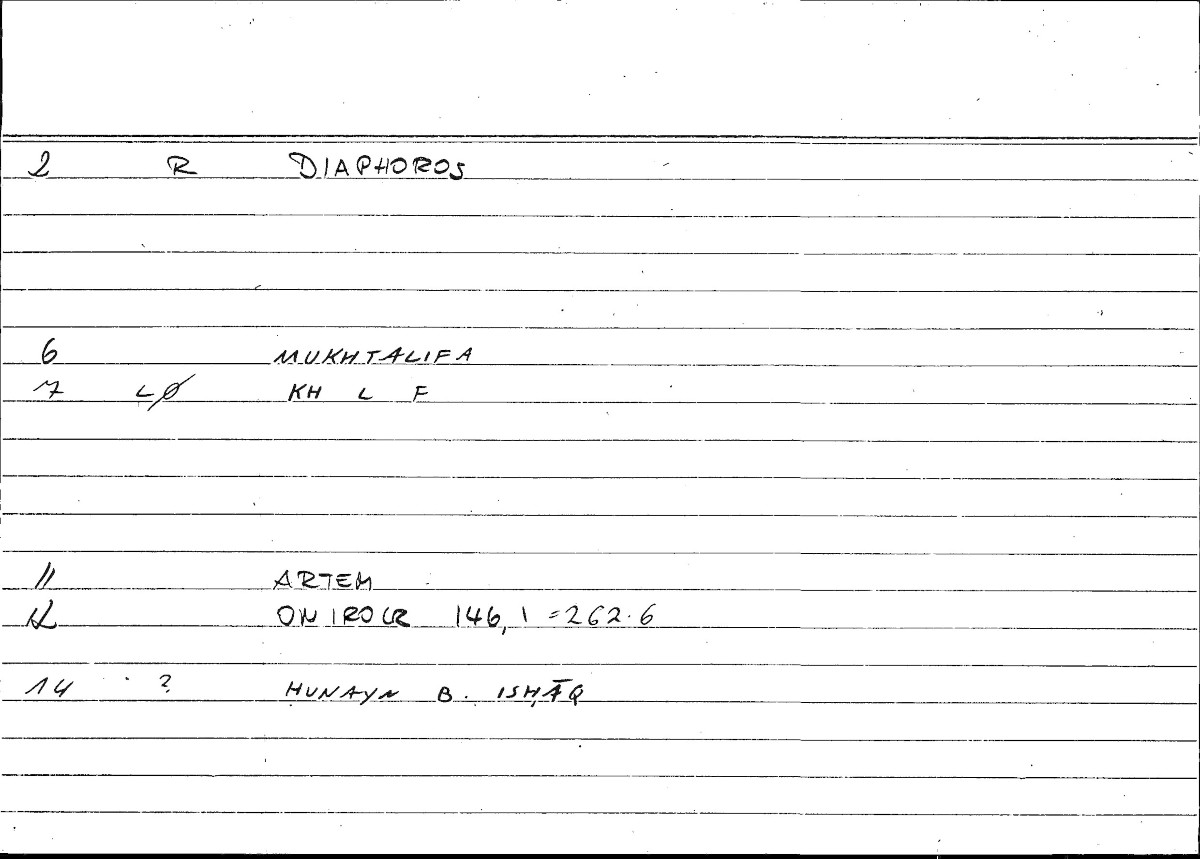 2 R DIAPHOROS
6 MUKHTALIFA
7 LØ KH L F
11 ARTEM
12 ONIROCR 146,1 =262.6
14 ? ḤUNAYN B. ISḤĀQ